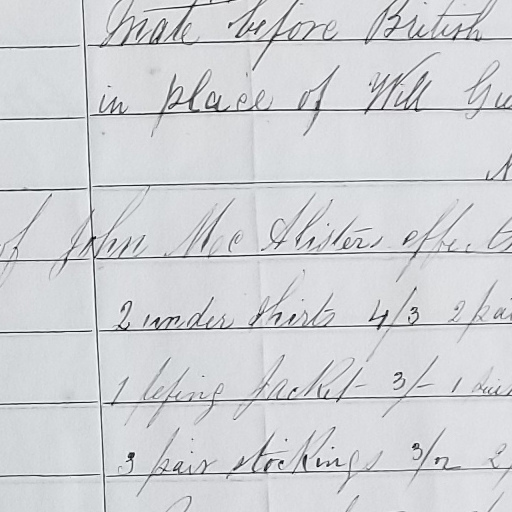 mate before British
in place of Will
of John Mac Alisters effects
2 under shirts 4/3 2 pai
1 Jacket 3/- 1
3 pair stockings 3/2 2/